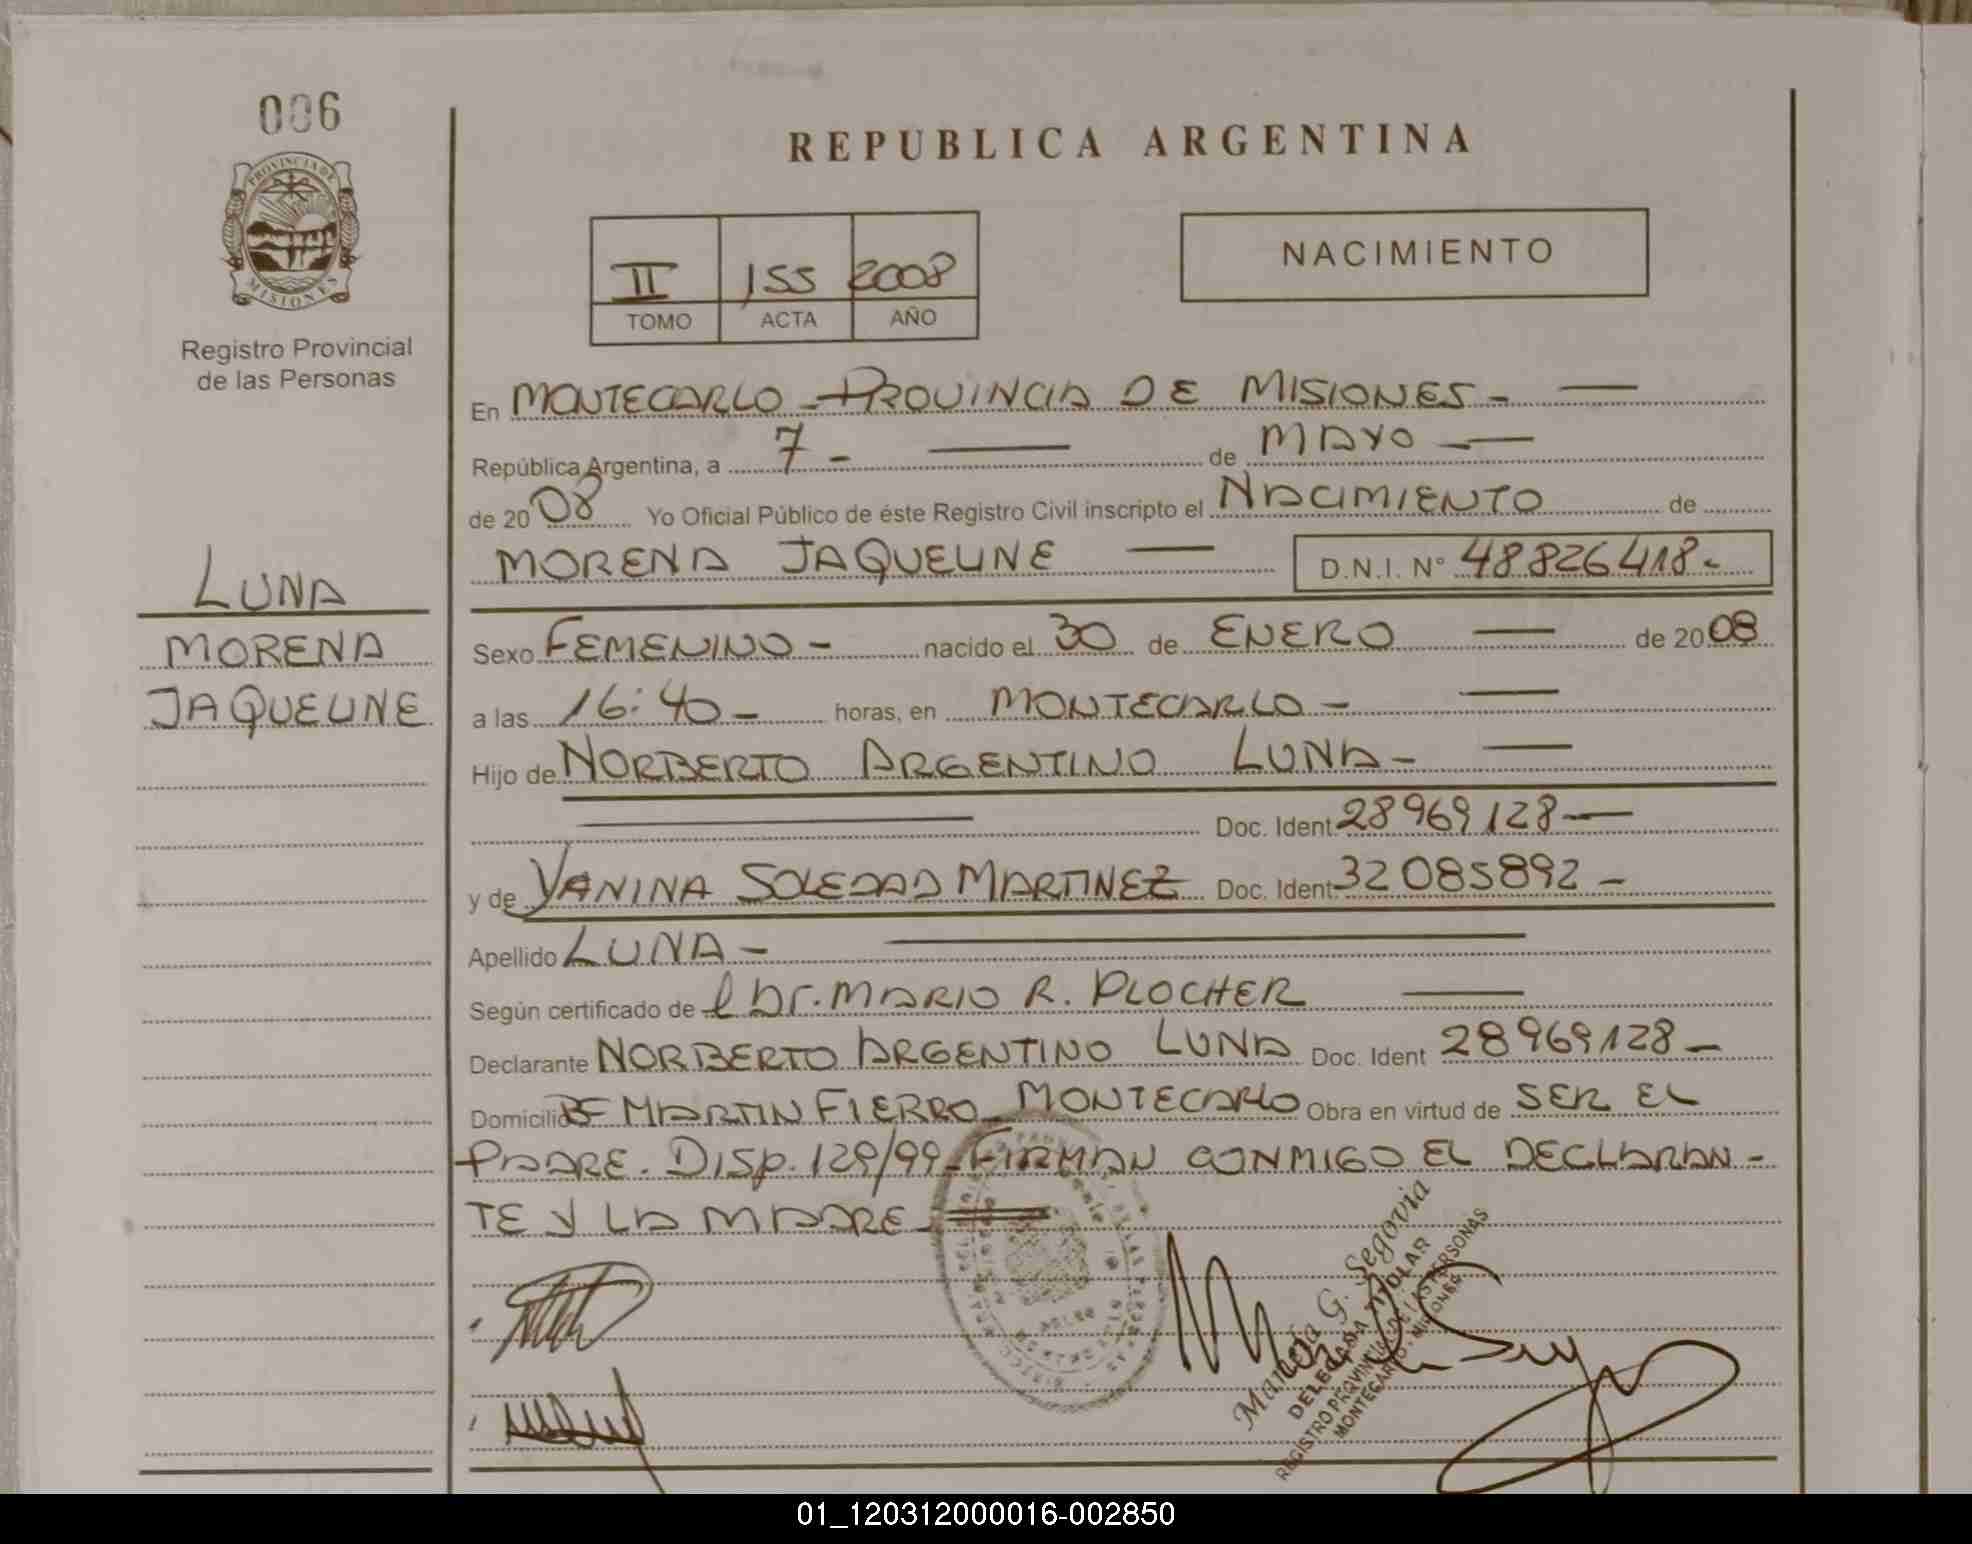 006
PROVINCIA DE
MISIONES
Registro Provincial
de las Personas
REPUBLICA ARGENTINA
II 155 2008
TOMO ACTA AÑO
NACIMIENTO
En MONTECARLO - PROVINCIA DE MISIONES -
República Argentina, a 7 - de MAYO -
de 2008 Yo Oficial Público de éste Registro Civil inscripto el NACIMIENTO de
MORENA JAQUELINE D.N.I. Nº 48826418 -
LUNA
MORENA
JAQUELINE
Sexo FEMENINO - nacido el 30 de ENERO de 2008
a las 16:40 - horas, en MONTECARLO -
Hijo de NORBERTO ARGENTINO LUNA -
Doc. Ident. 28969128 -
y de YANINA SOLEDAD MARTINEZ Doc. Ident. 32085892 -
Apellido LUNA -
Según certificado de l Dr. MARIO R. PLOCHER
Declarante NORBERTO ARGENTINO LUNA Doc. Ident 28969128 -
Domicilio Bº MARTIN FIERRO - MONTECARLO Obra en virtud de SER EL
PADRE. DISP. 129/99 - FIRMAN CONMIGO EL DECLARAN -
TE Y LA MADRE -
G. Segovia
DELEGADA TITULAR
REGISTRO PROVINCIAL DE LAS PERSONAS
MONTECARLO - MISIONES
01_120312000016-002850